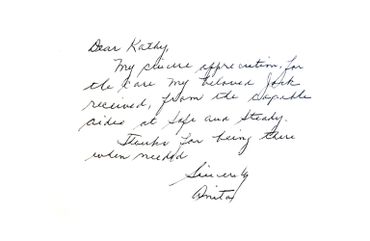 Dear Kathy,
My sincere appreciation, for
the care my beloved Jack
received, from the capable
aides at Safe and Steady.
Thanks for being there
when needed
Sincerely
Anita